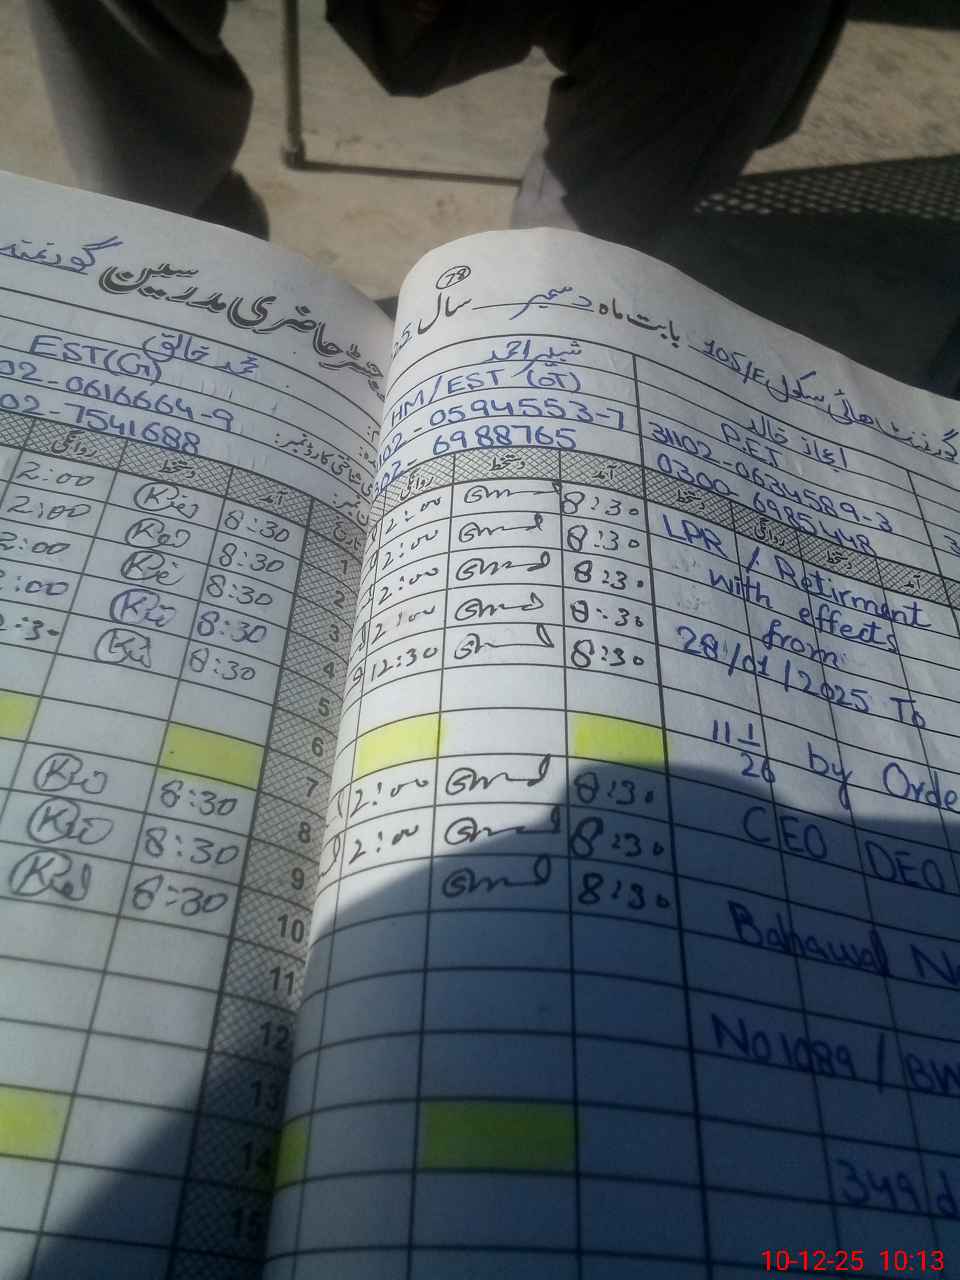 رجسٹر حاضری مدرسین گورنمنٹ
محمد خالق
EST(G)
02-0616664-9
02-7541688
روانگی دستخط آمد
2:00 8:30 1
2:00 8:30 2
2:00 8:30 3
2:00 8:30 4
2:30 8:30 5
6
7
8:30 8
8:30 9
8:30 10
11
12
13
14
15
78
گورنمنٹ ہائی سکول 105/E بابت ماہ دسمبر سال 25
شبیر احمد
HM/EST (GT)
102-0594553-7
302-6988765
روانگی دستخط آمد
2:00 8:30
2:00 8:30
2:00 8:30
2:00 8:30
12:30 8:30
2:00 8:30
2:00 8:30
8:30
اعجاز خالد
P.E.T
31102-0634589-3
0300-6985448
دستخط روانگی دستخط آمد
LPR / Retirment
with effects
from
28/01/2025 To
11 1/26 by Orde
CEO DEO
Bahawal N
No 1089 / BW
349/d
10-12-25 10:13